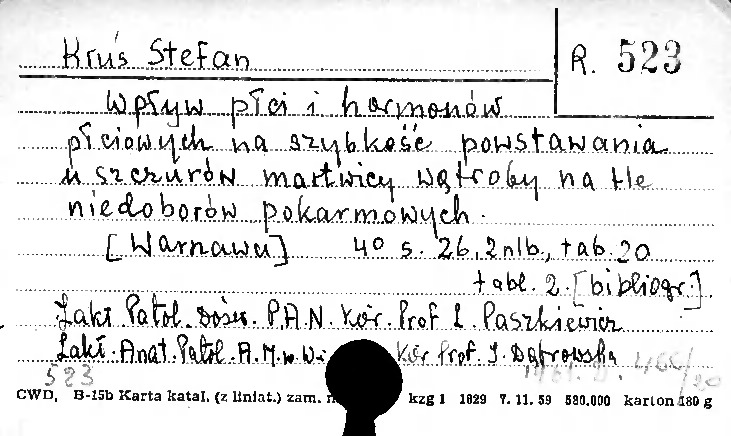 Kruś Stefan
R. 523
Wpływ płci i hormonów
płciowych na szybkość powstawania
u szczurów martwicy wątroby na tle
niedoborów pokarmowych.
[Warnawu] 4° s. 26, 2 nlb., tab. 20
tabl. 2. [bibliogr.]
Zakł. Patol. Dośw. P.A.N. Kier. Prof. L. Paszkiewicz
Zakł. Anat. Patol. A.M. w Kier Prof. J. Dąbrowska
523
CWD, B-15b Karta katal. (z liniat.) zam. kzg 1 1029 7. 11. 59 580.000 karton 180 g